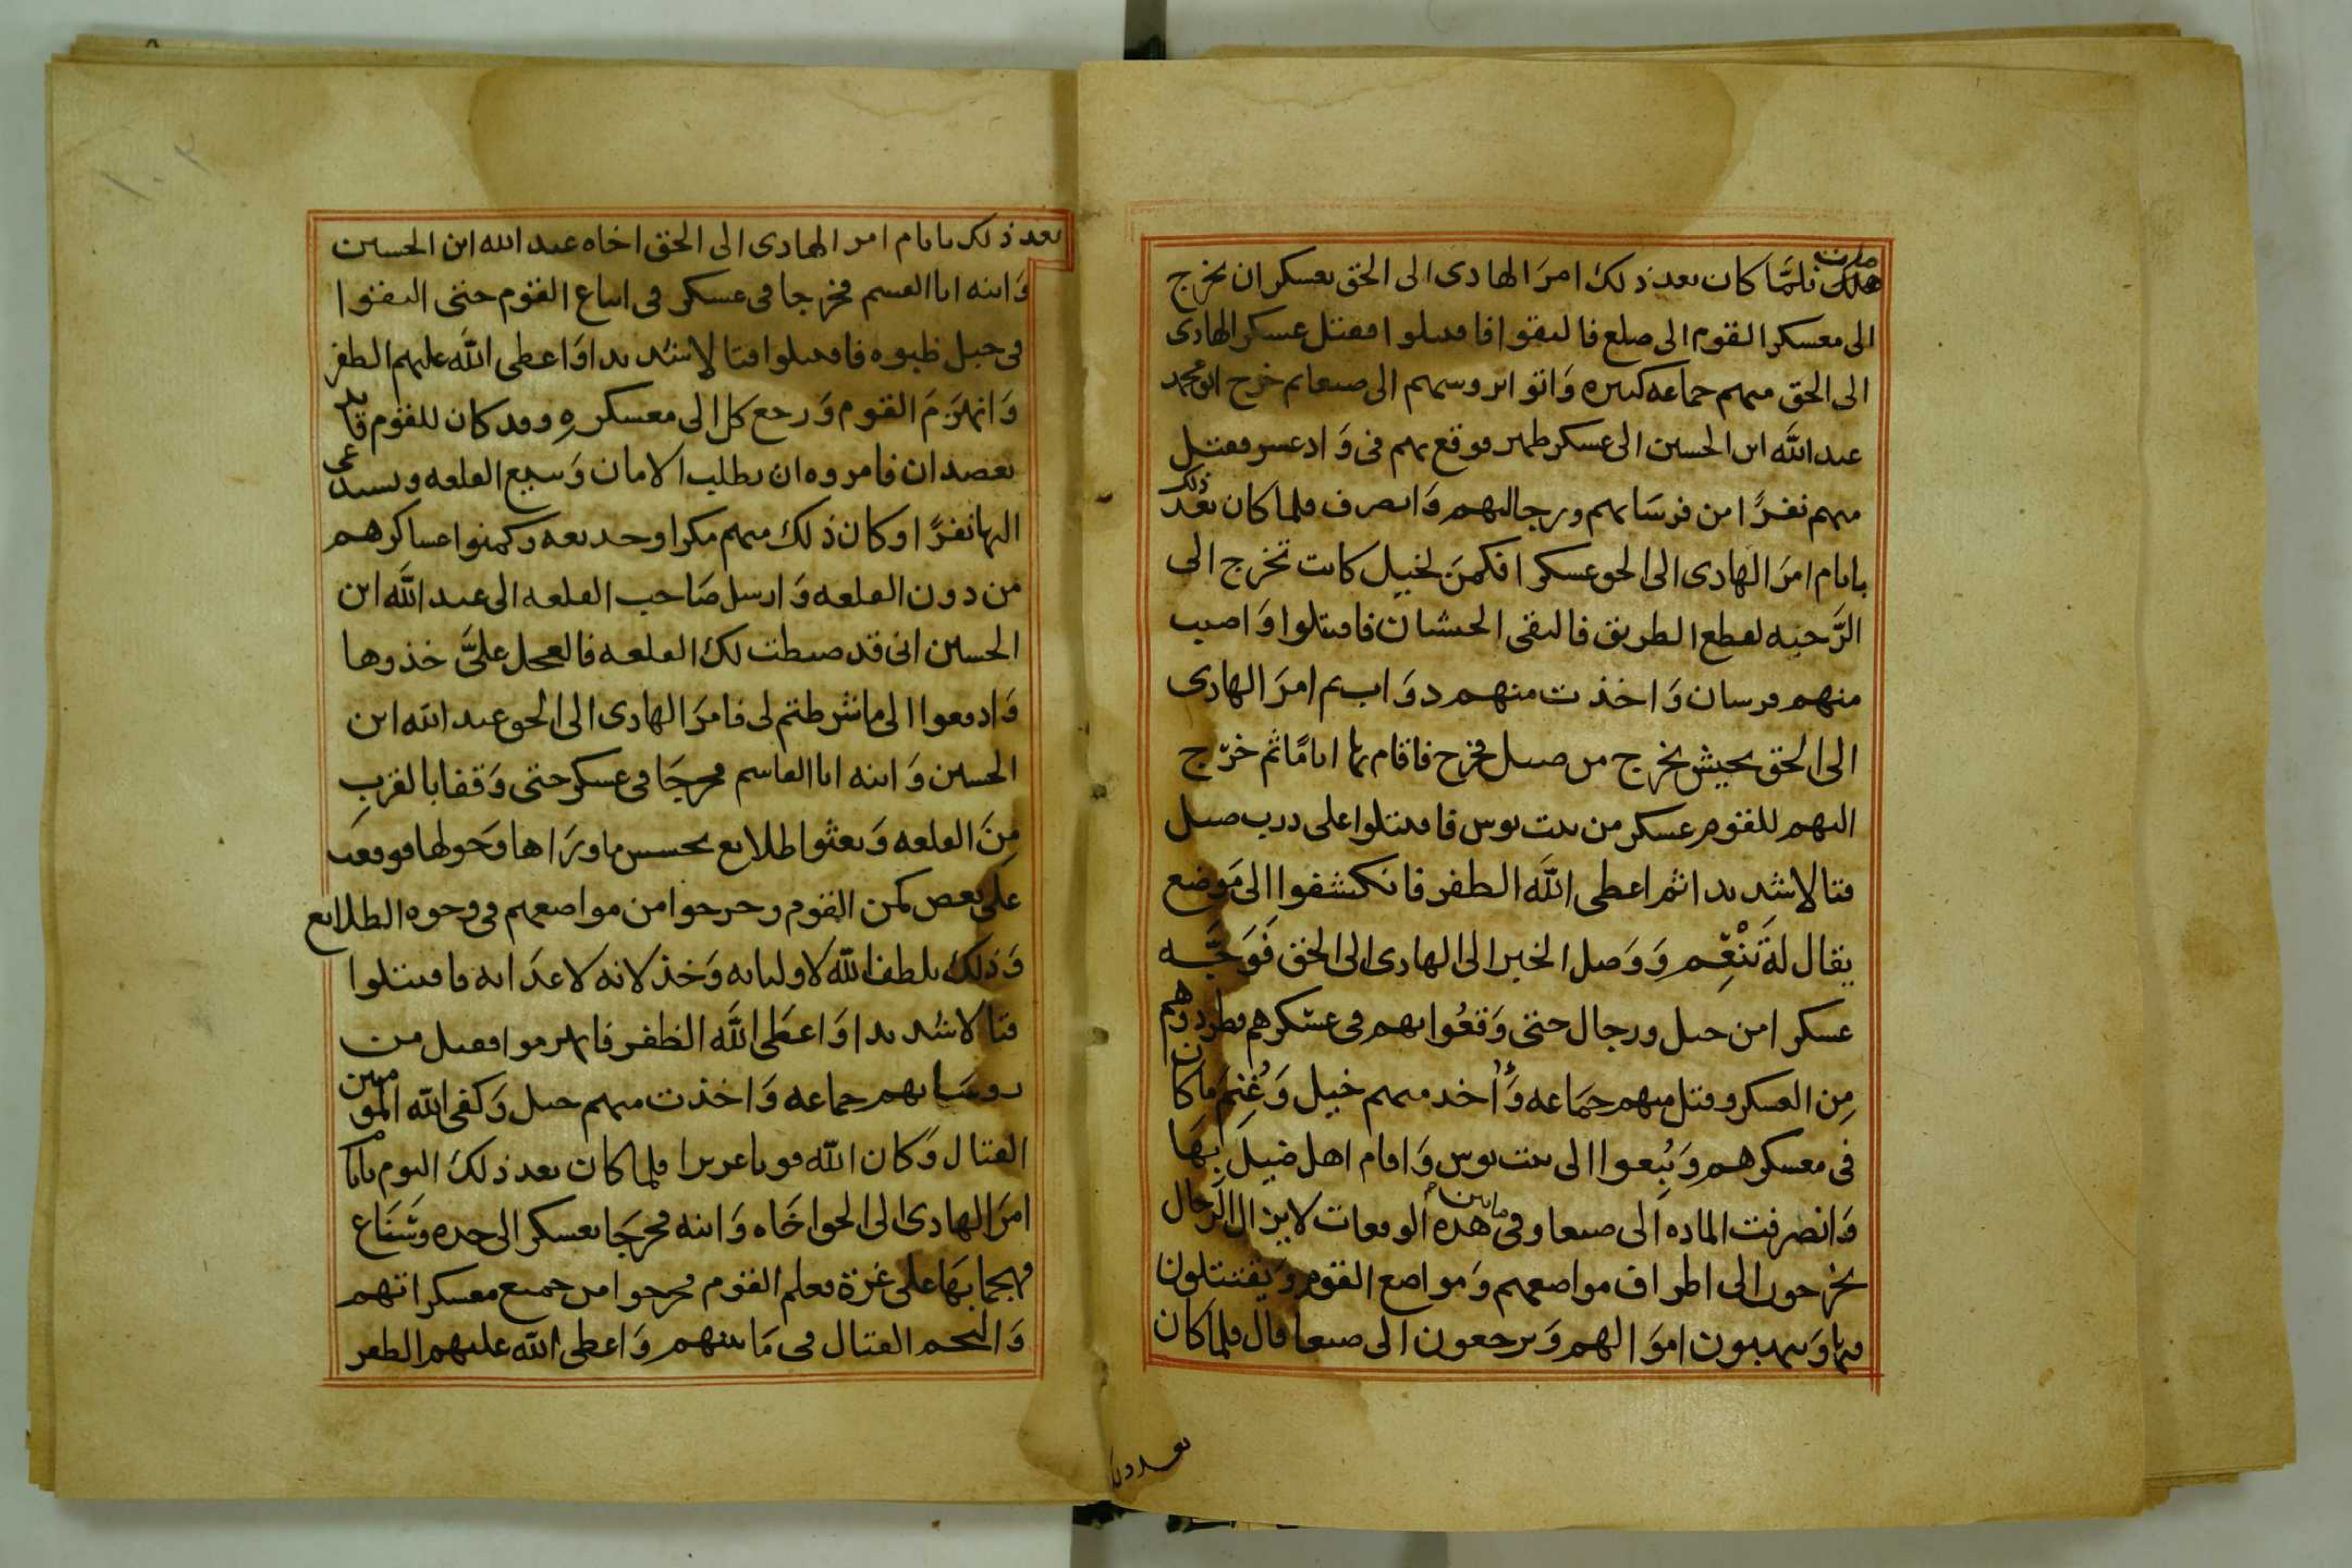 هلك فلمَّا كان بعد ذلك امرَ الهادى الى الحق بعسكر ان يخرج
مات
الى معسكر القوم الى صلع فالتقوا فاقتتلوا فقتل عسكر الهادى
الى الحق منهم جماعه كثيره وَاتوا بروسهم الى صنعا ثم خرج ابو محمد
عبد الله ابن الحسين الى عسكر ظهر فوقع بهم فى وَاد عسر فقتل
منهم نفرًا من فرسَانهم ورجالتهم وَانصرف فلما كان بعد ذلك
باىام امرَ الهادى الى الحق عسكرا فكمنَ لخيل كانت تخرج الى
الرَّحبه لقطع الطريق فالتقى الجيشان فاقتتلوا وَاصيب
منهم فرسان وَاخذت منهم دوَاب ثم امرَ الهادى
الى الحق بجيش يخرج من ضبل فخرج فاقام بها ايامًا ثم خرَج
اليهم للقوم عسكر من بيت بوس فاقتتلوا على درب ضبل
قتالا شديدا ثم اعطى اللَّه الظفر فانكشفوا الى مَوضع
يقال لهَ تَنْعِم وَوَصل الخبر الى الهادى الى الحق فَوَجَّه
عسكرا من خيل ورجال حتى وَقعُوا بهم فى عسْكرهم فطردوهم
مِن العسكر وقتل منهم جَمَاعه وَأُخذ منهم خيل وَغُنِمَ ما كان
فى معسكرهم وَتُبِعوا الى بيت بوس وَاقام اهل ضبلَ بهَا
وَانصرفت الماده الى صنعا وفى ما بين هذه الوقعات لا يزال الرجال
يخرجون الى اطراف مواضعهم وَمواضع القوم وَيقتتلون
فيها وَينهبون اموَالهم وَيرجعون الى صنعا قال فلما كان
بعد ذلك
بعد ذلك باىام امر الهادى الى الحق اخاه عبد الله ابن الحسين
وَابنه ابا القسم فخرجا فى عسكر فى اتباع القوم حتى التقوا
فى جبل ظبوه فاقتتلوا قتالا شديدا وَاعطى اللَّه عليهم الظفر
وَانهزمَ القوم وَرجع كل الى معسكرهِ وقد كان للقوم قايد
بعضدان فامروه ان يطلب الامان وَيبيع القلعه ويستدعى
اليها نفرًا وكان ذلك منهم مكرا وخديعه وكمنوا عساكرهم
من دون القلعه وَارسل صَاحب القلعه الى عبد اللَّه ابن
الحسين انى قد ضبطت لك القلعه فالعجل علىَّ خذوها
وَادفعوا الى ما شرطتم لى فامرَ الهادى الى الحق عبد الله ابن
الحسين وَابنه ابا القاسم فخرجَا فى عسكر حتى وَقفا بالقربِ
مِنَ القلعه وَبعثوا طلايع تحسس ما ورَاها وَحولها فوقعت
على بعض كمن القوم وخرجوا من مواضعهم فى وجوه الطلايع
وَذلك بلطف اللَّه لاوليائه وَخذلانه لاعدَائه فاقتتلوا
قتالا شديدا وَاعطَى اللَّه الظفر فانهزموا فقتل من
روسَائهم جماعه وَاخذت منهم خيل وَكفى اللّه المومنين
القتال وَكان اللّه قويا عزيزا فلما كان بعد ذلك اليوم باىام
امرَ الهادى الى الحق اخَاه وَابنه فخرجَا بعسكر الى حده وشَنَاع
فهجما بهَا على غرة فعلم القوم فخرجوا من جميع معسكراتهم
وَالتحم القتال فى مَا بينهم وَاعطى اللّه عليهم الظفر